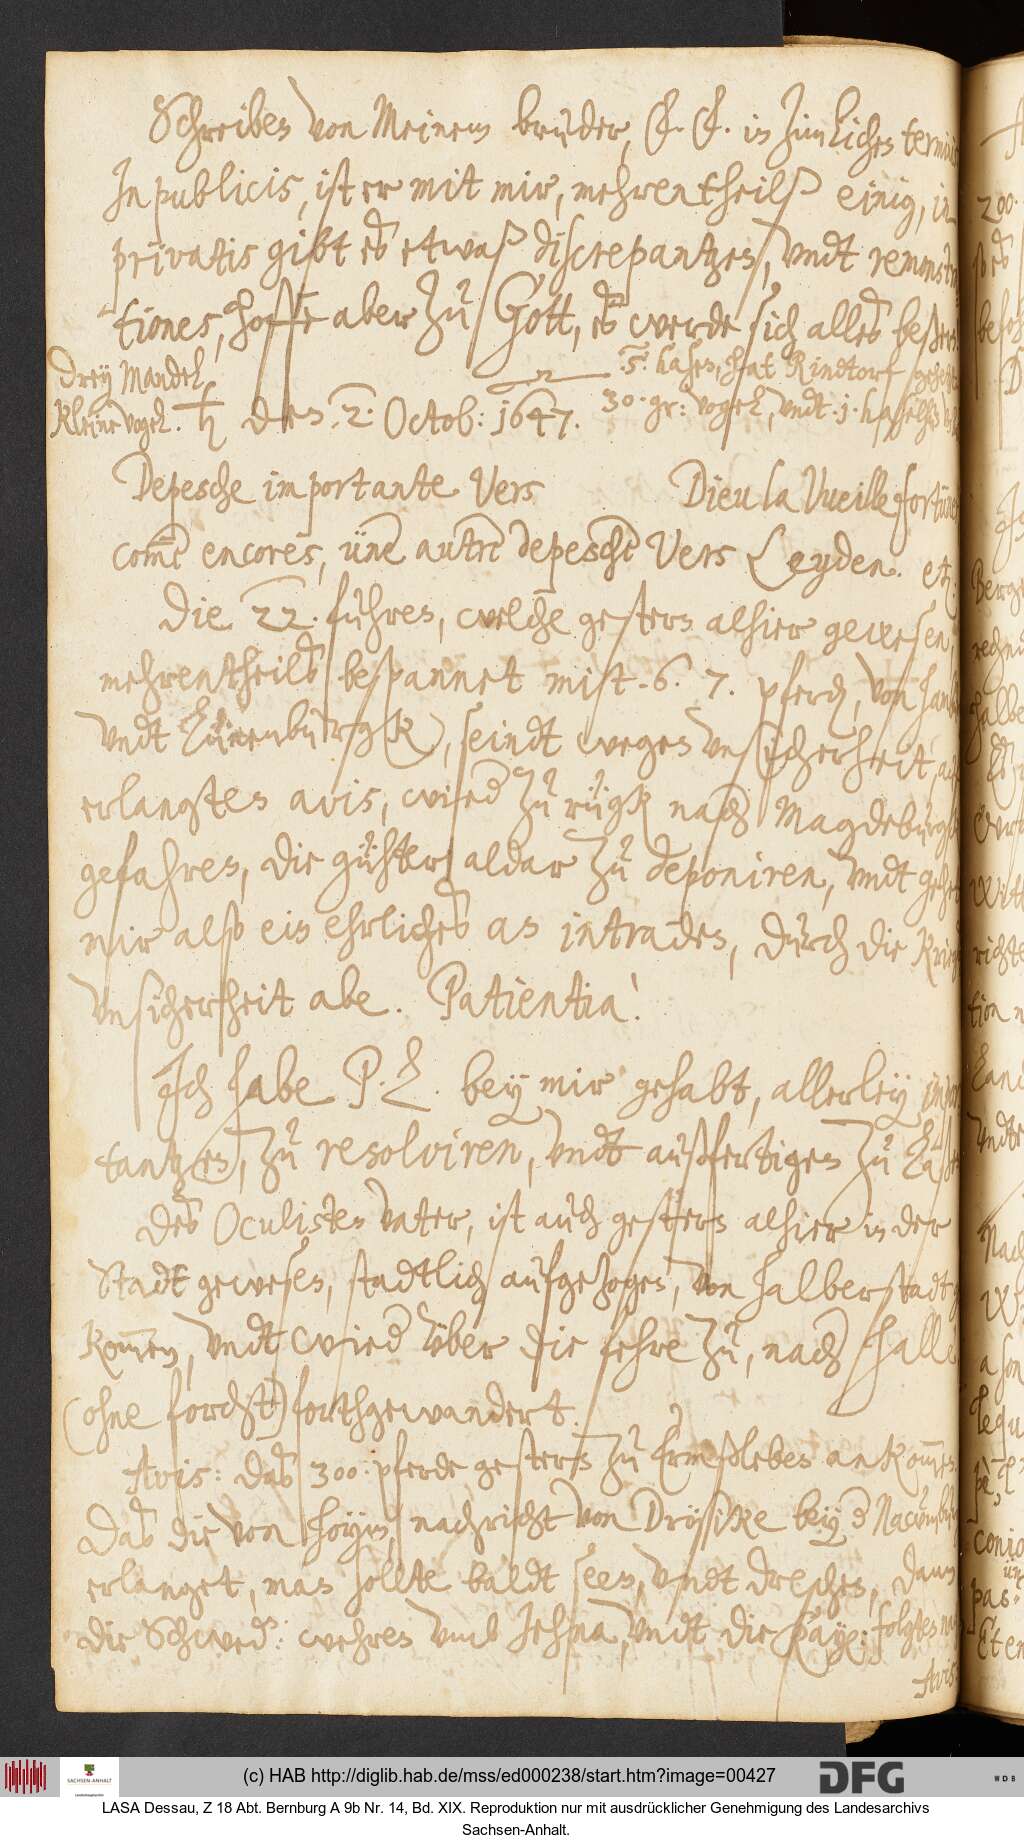 Schreiben von Meinem bruder, in zimlichen termin
In publicis, ist er mit mir, mehrentheilß einig, in
privatis gibt es etwaß discrepantzen, undt remonstra-
tiones, hoffe aber zu Gott, es werde sich alles beßern.
5. hasen, hat Rindtorf gehetzt
Drey Mandel
Kleine vogel. ♄ den .2. Octob: 1647. 30. gr: vogel, undt .1. haselhun
Depesche importante vers Dieu la vueille fortüner
comme encores, üne autre depesche vers Leyden. etc.
Die 22. fuhren, welche gestern alhier gewesen,
mehrentheils bespannet mitt .6. 7. pferden, von
undt Lünenburgk, seindt wegen unsicherheit,
erlangten avis, wieder zu rügk nach Magdeburgk
gefahren, die gühter aldar zu deponiren, undt gehet
mir also ein ehrliches an intraden, durch die
unsicherheit abe. Patientia!
Ich habe P. L. bey mir gehabt, allerley impor
tantzen, zu resolviren, undt außfertigen zu laßen
Des Oculisten vater, ist auch gestern alhier in der
Stadt gewesen, stadtlich aufgezogen, von halberstadt
kommen, undt wieder über die fehre zu, nach halle
(ohne forcht) forthgewandert.
Avis: das 300. pferde gestern zu Ermßleben ankommen.
Das die von hoym nachricht von Drüsicke bey
erlanget, man sollte baldt seen, undt dreschen, dann
die Schweden: wehren umb Jehna, undt die Kay: folgten
Avis
(c) HAB http://diglib.hab.de/mss/ed000238/start.htm?image=00427
DFG
WDB
SACHSEN-ANHALT
LASA Dessau, Z 18 Abt. Bernburg A 9b Nr. 14, Bd. XIX. Reproduktion nur mit ausdrücklicher Genehmigung des Landesarchivs
Sachsen-Anhalt.